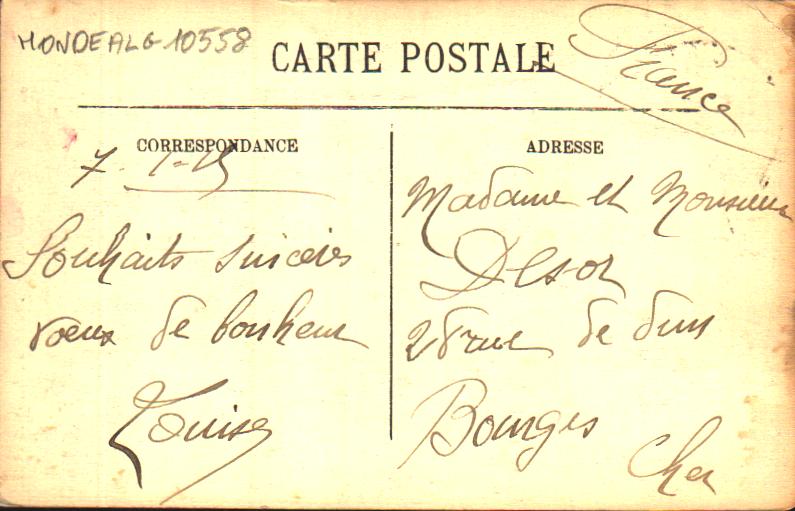 MONDEALG 10558
CARTE POSTALE
France
CORRESPONDANCE
7-1-15
Souhaits sincères
voeux de bonheur
Louise
ADRESSE
Madame et Monsieur
Desor
28 rue de dun
Bourges
Cher